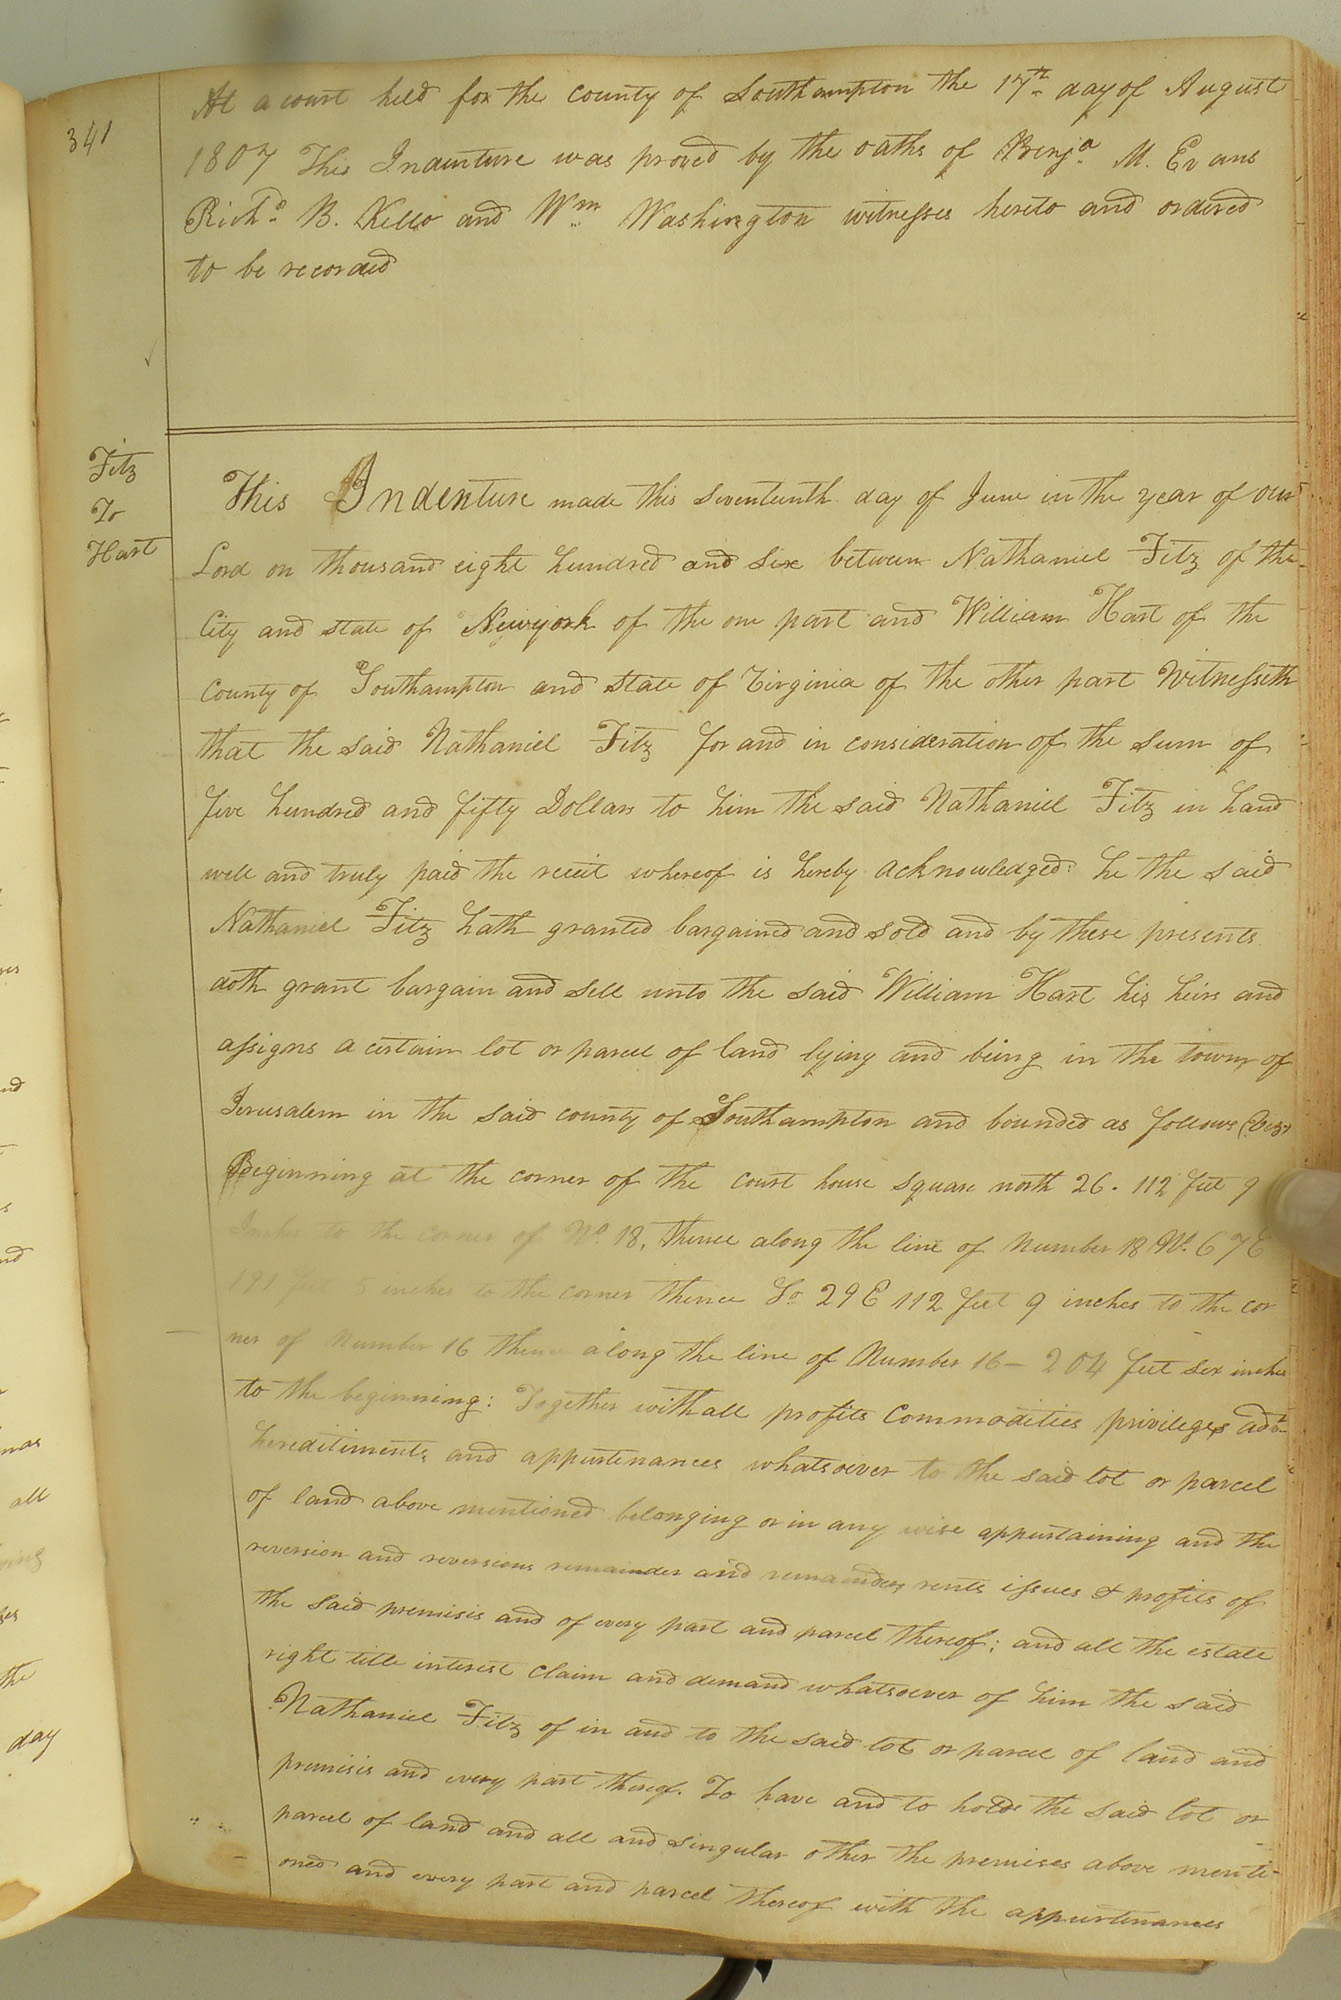 341
At a court held for the county of Southampton the 17th day of August
1807 This Indenture was proved by the oaths of Benja. M. Evans
Richd. B. Kello and Wm. Washington witnesses hereto and ordered
to be recorded
Fitz
To
Hart
This Indenture made this seventeenth day of June in the year of our
Lord on thousand eight hundred and six between Nathaniel Fitz of the
City and state of Newyork of the one part and William Hart of the
County of Southampton and state of Virginia of the other part Witnesseth
that the said Nathaniel Fitz for and in consideration of the sum of
five hundred and fifty Dollars to him the said Nathaniel Fitz in hand
well and truly paid the reciit whereof is hereby acknowledged: he the said
Nathaniel Fitz hath granted bargained and sold and by these presents
doth grant bargain and sell unto the said William Hart his heirs and
assigns a certain lot or parcel of land lying and being in the town of
Jerusalem in the said county of Southampton and bounded as follows (Viz)
Beginning at the corner of the court house square north 26. 112 feet 9
Inches to the corner of No. 18, thence along the line of number 18 No. 67 E
191 feet 8 inches to the corner thence So 29 E 112 feet 9 inches to the cor
ner of number 16 thence along the line of Number 16 — 204 feet six inches
to the beginning: Together with all profits commodities privileges
hereditiments and appurtenances whatsoever to the said lot or parcel
of land above mentioned belonging or in any wise appurtaining and the
reversion and reversions remainder and remainders rents issues & profits of
the said premisis and of every part and parcel thereof; and all the estate
right title interest claim and demand whatsoever of him the said
Nathaniel Fitz of in and to the said lot or parcel of land and
premisis and every part thereof. To have and to hold the said lot or
parcel of land and all and singular other the premises above menti-
oned and every part and parcel thereof with the appurtenances